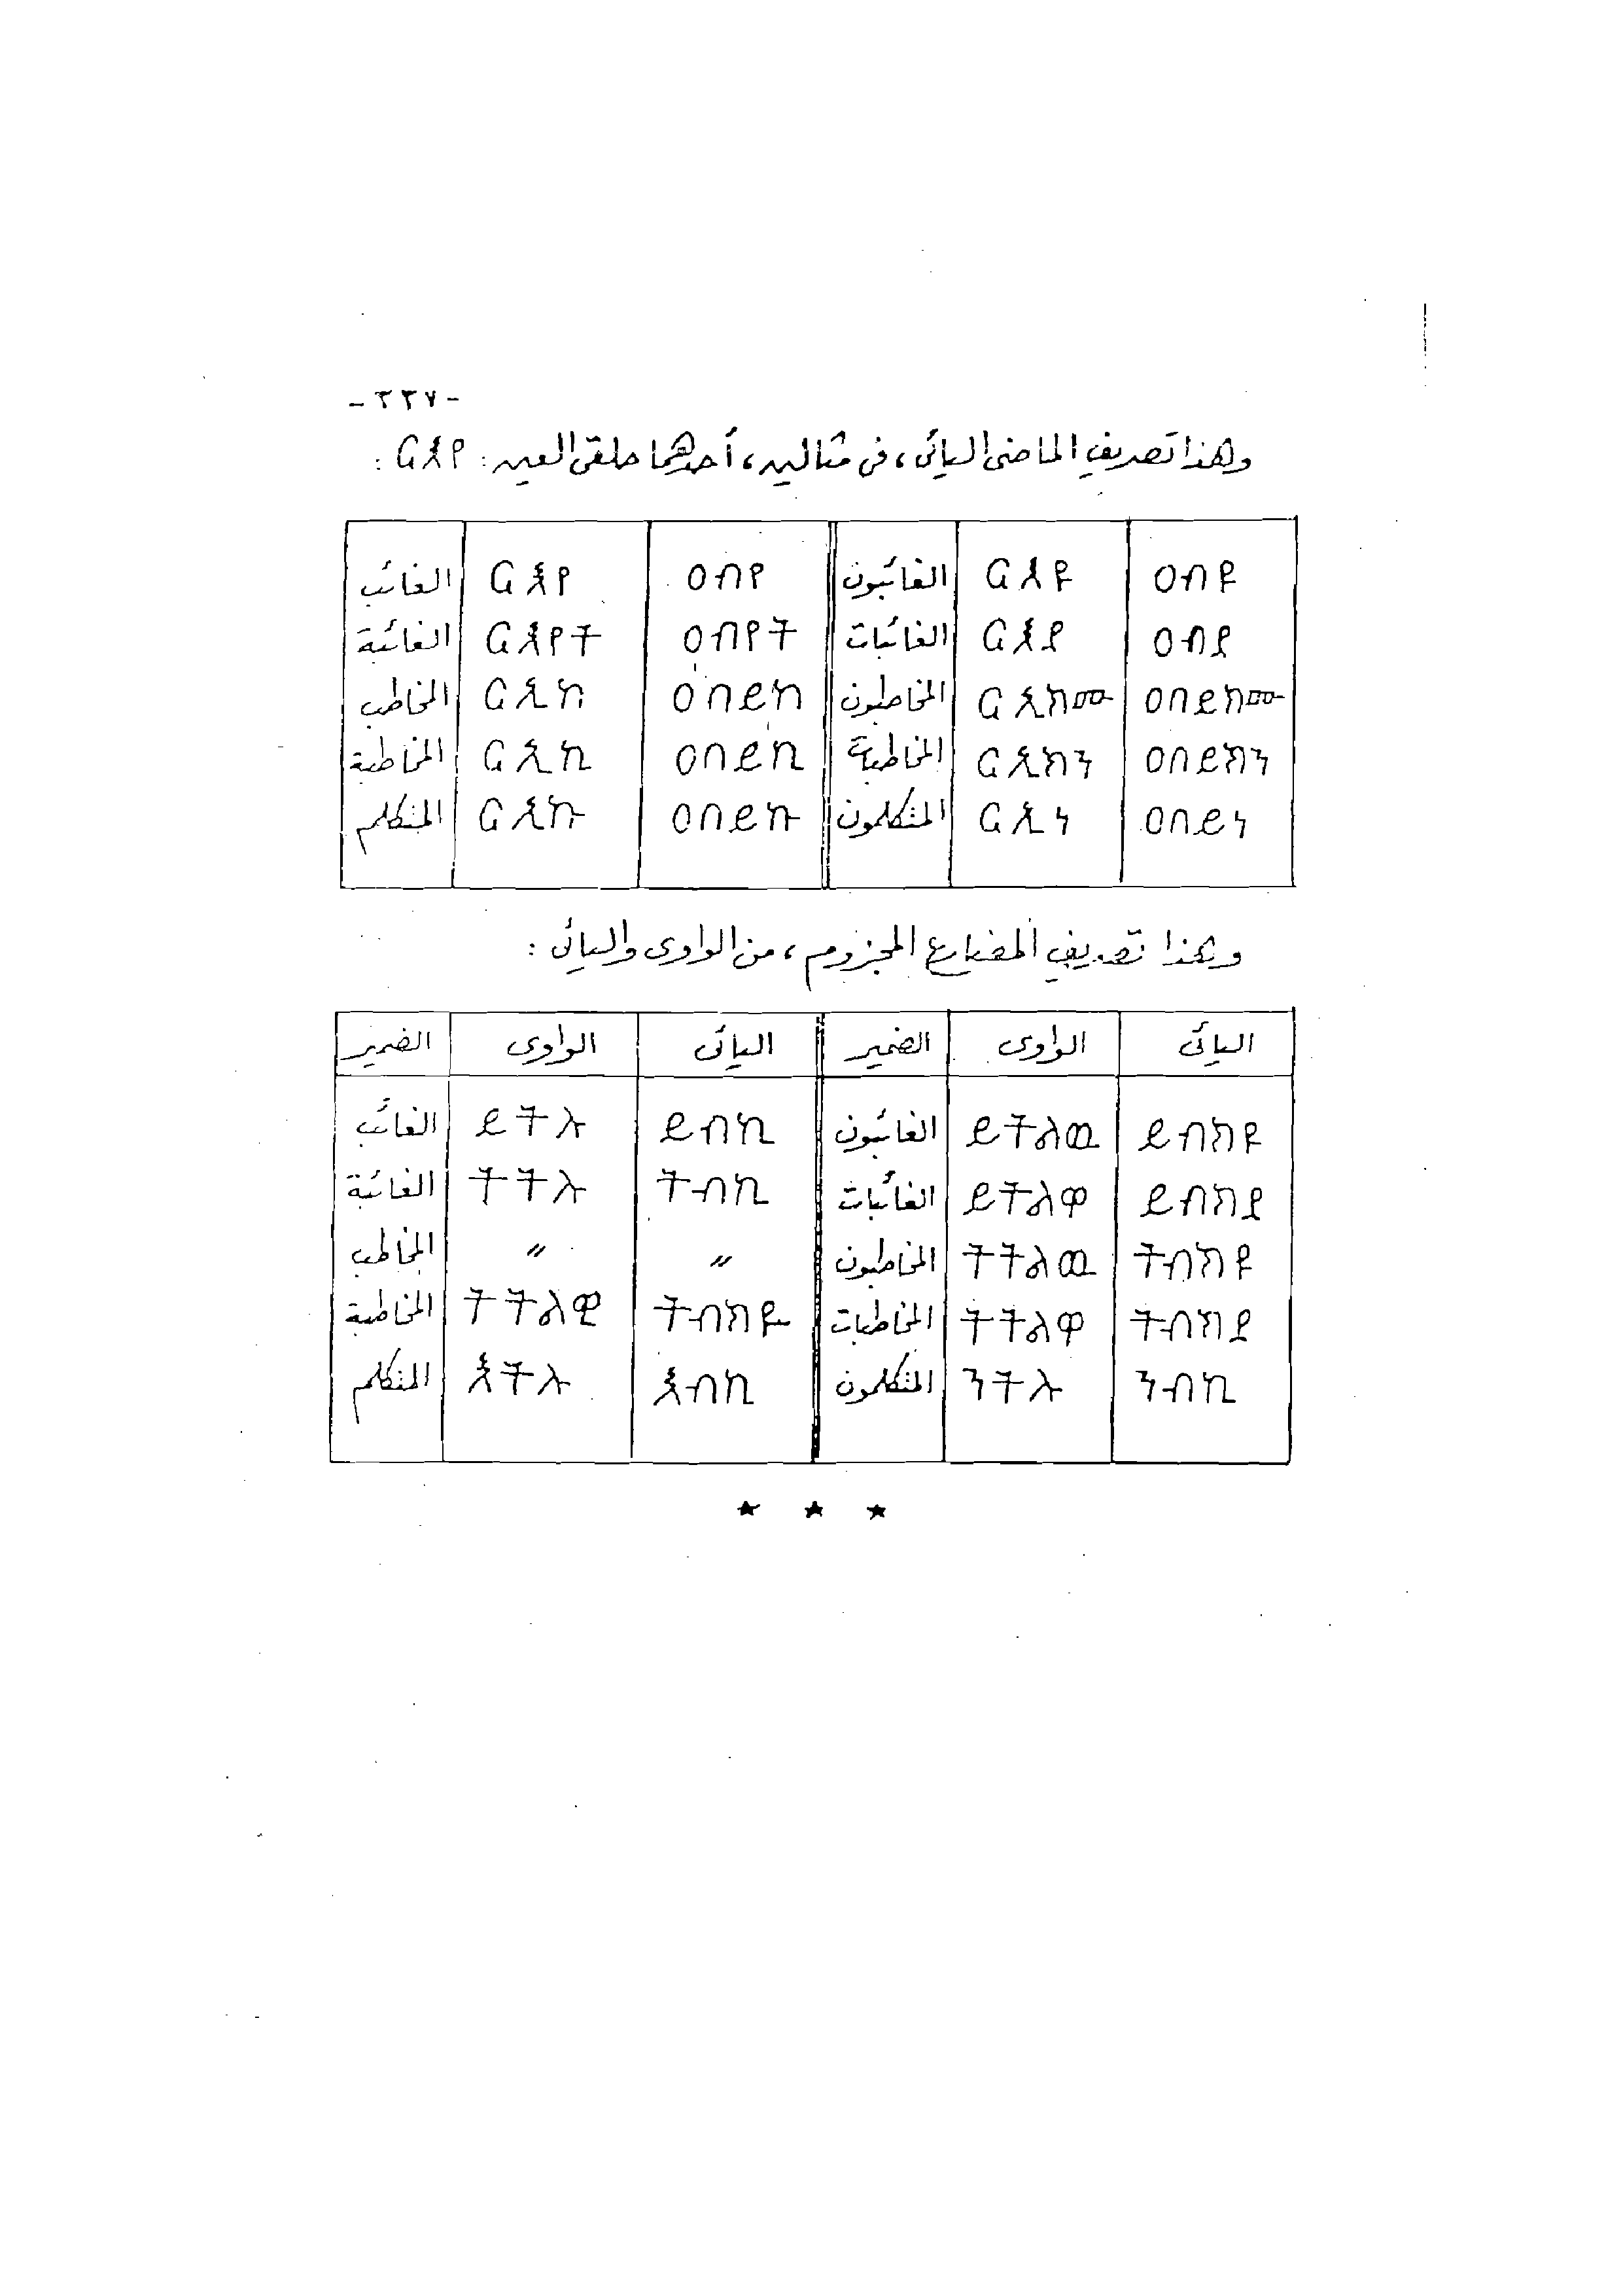 - ٣٣٧ -
وهذا تصريف الماضى اليائى، فى مثالين، أحدهما حلقى العين: ርእየ :
الغائب ርእየ ዐብየ الغائبون ርእዩ ዐብዩ
الغائبة ርእየት ዐብየት الغائبات ርእያ ዐብያ
المخاطب ርኢከ ዐበይከ المخاطبون ርኢክሙ ዐበይክሙ
المخاطبة ርኢኪ ዐበይኪ المخاطبة ርኢክን ዐበይክን
المتكلم ርኢኩ ዐበይኩ المتكلمون ርኢነ ዐበይነ
وهذا تصريف المضارع المجزوم، من الواوى واليائى :
الضمير الواوى اليائى الضمير الواوى اليائى
الغائب ይትሉ ይብኪ الغائبون ይትልዉ ይብክዩ
الغائبة ትትሉ ትብኪ الغائبات ይትልዋ ይብክያ
المخاطب 〃 〃 المخاطبون ትትልዉ ትብክዩ
المخاطبة ትትልዊ ትብክዪ المخاطبات ትትልዋ ትብክያ
المتكلم እትሉ እብኪ المتكلمون ንትሉ ንብኪ
★ ★ ★